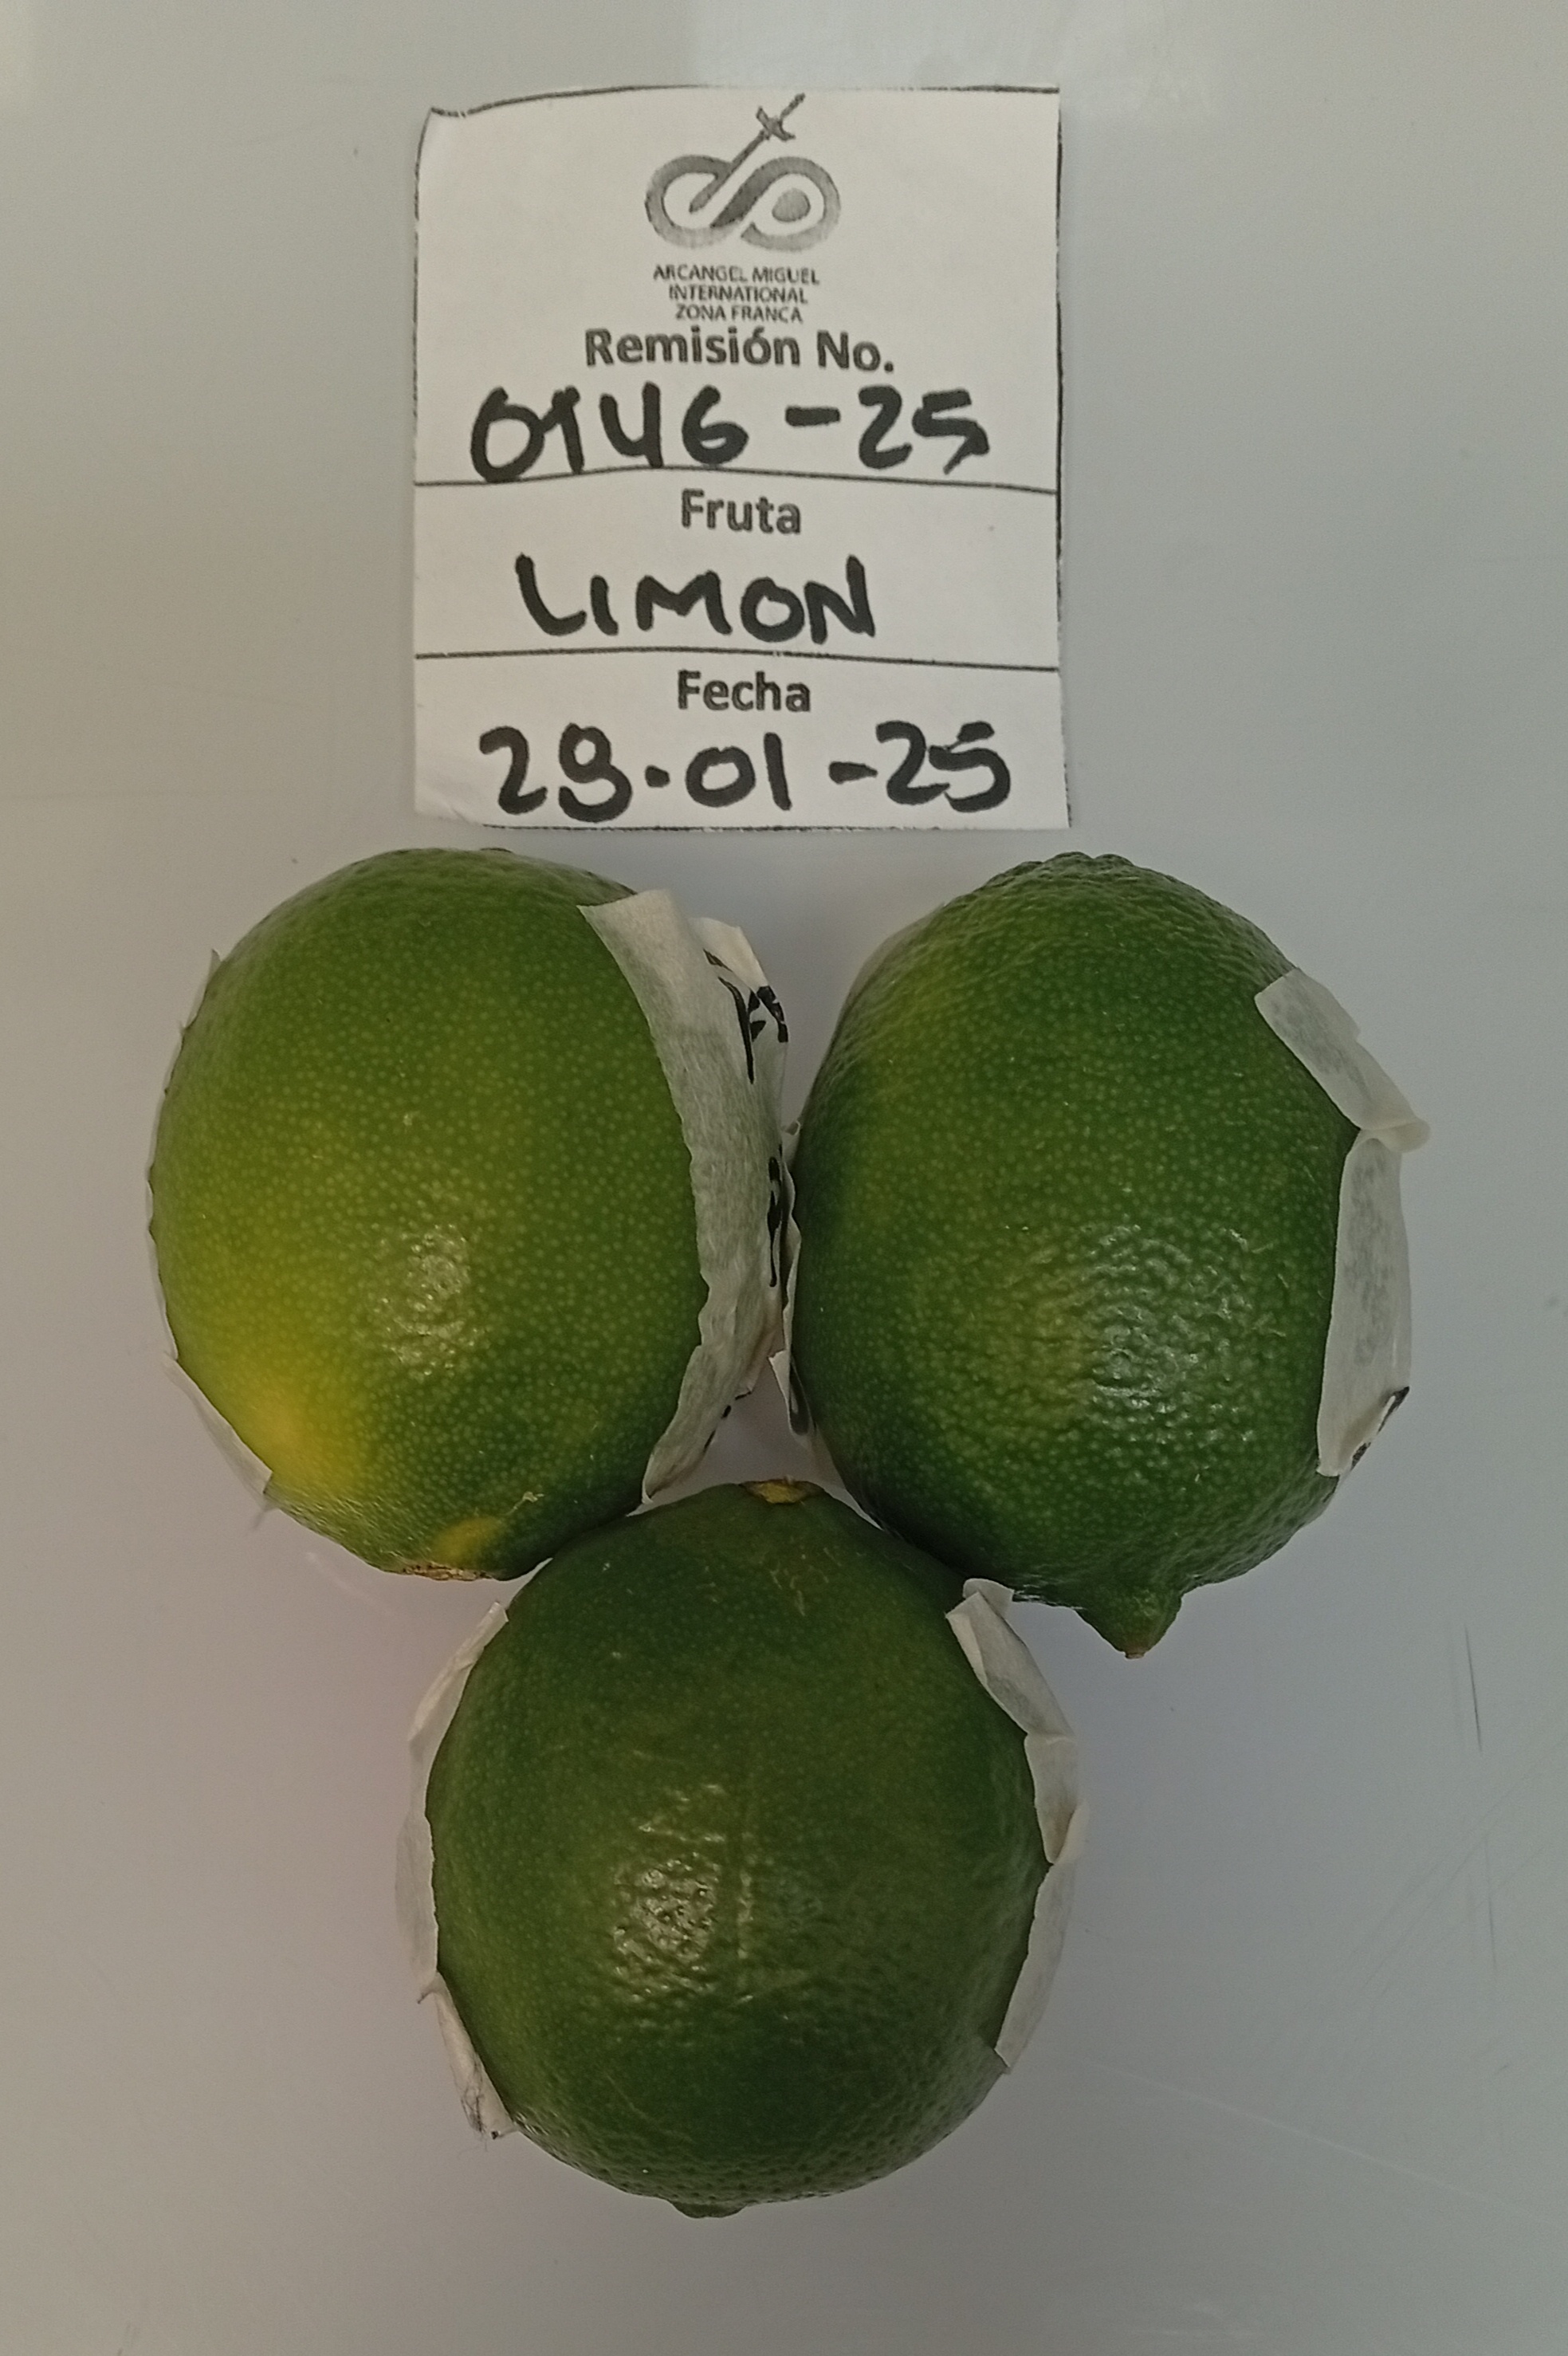 ARCANGEL MIGUEL
INTERNATIONAL
ZONA FRANCA
Remisión No.
0146-25
Fruta
LIMON
Fecha
29.01-25